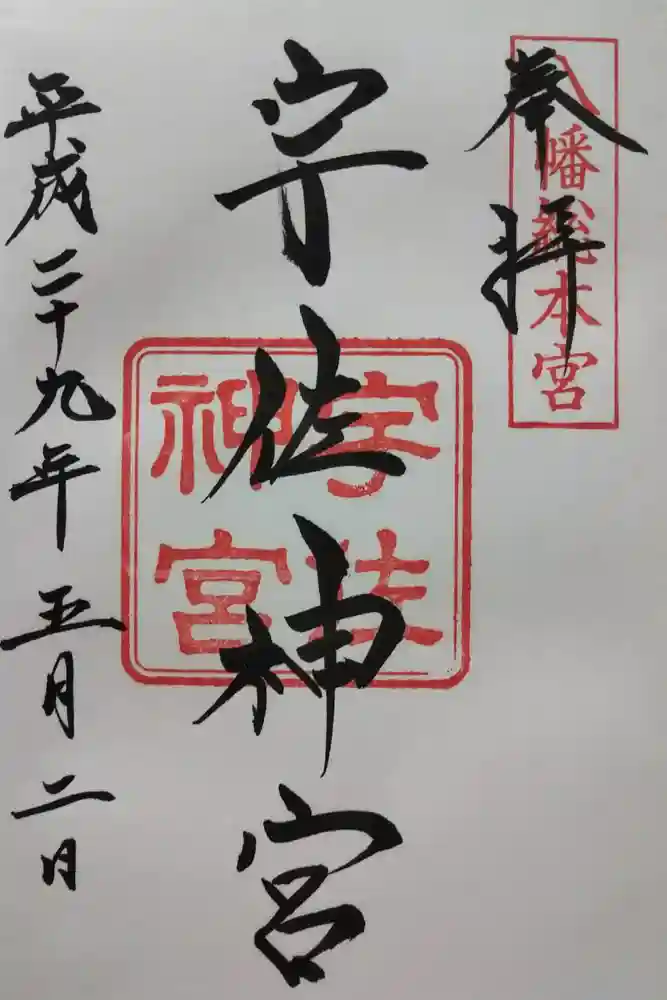 奉拝
八幡総本宮
宇佐神宮
宇佐
神宮
平成二十九年五月二日